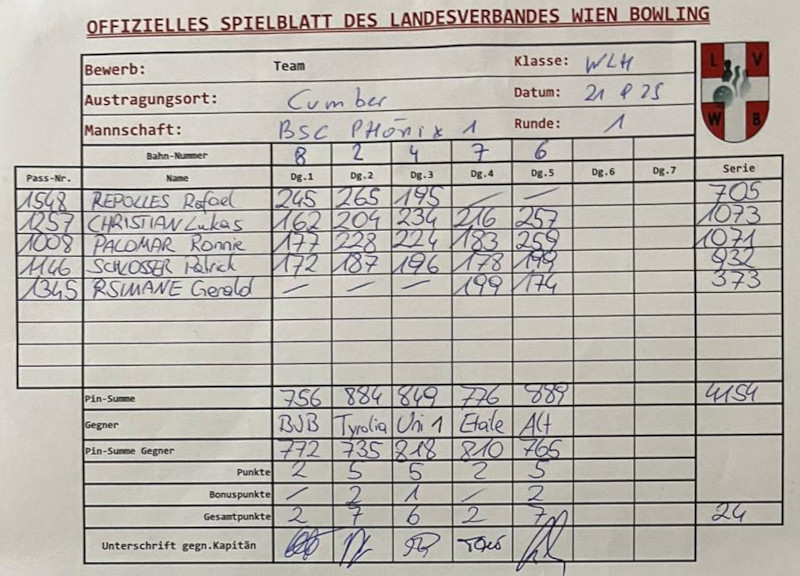 OFFIZIELLES SPIELBLATT DES LANDESVERBANDES WIEN BOWLING
Bewerb: Team Klasse: WLH
Austragungsort: Cumber Datum: 21 8 25
Mannschaft: BSC PHÖNIX 1 Runde: 1
L V
W B
Bahn-Nummer 8 2 4 7 6
Pass-Nr. Name Dg.1 Dg.2 Dg.3 Dg.4 Dg.5 Dg.6 Dg.7 Serie
1548 REPOLLES Rafael 245 265 195 — — 705
1257 CHRISTIAN Lukas 162 204 234 216 257 1073
1008 PALOMAR Ronnie 177 228 224 183 259 1071
1146 SCHLOSSER Patrick 172 187 196 178 199 932
1345 RSIMANE Gerald — — — 199 174 373
Pin-Summe 756 884 849 776 889 4154
Gegner BJB Tyrolia Uni 1 Etaile Alt
Pin-Summe Gegner 772 735 818 810 765
Punkte 2 5 5 2 5
Bonuspunkte — 2 1 — 2
Gesamtpunkte 2 7 6 2 7 24
Unterschrift gegn.Kapitän